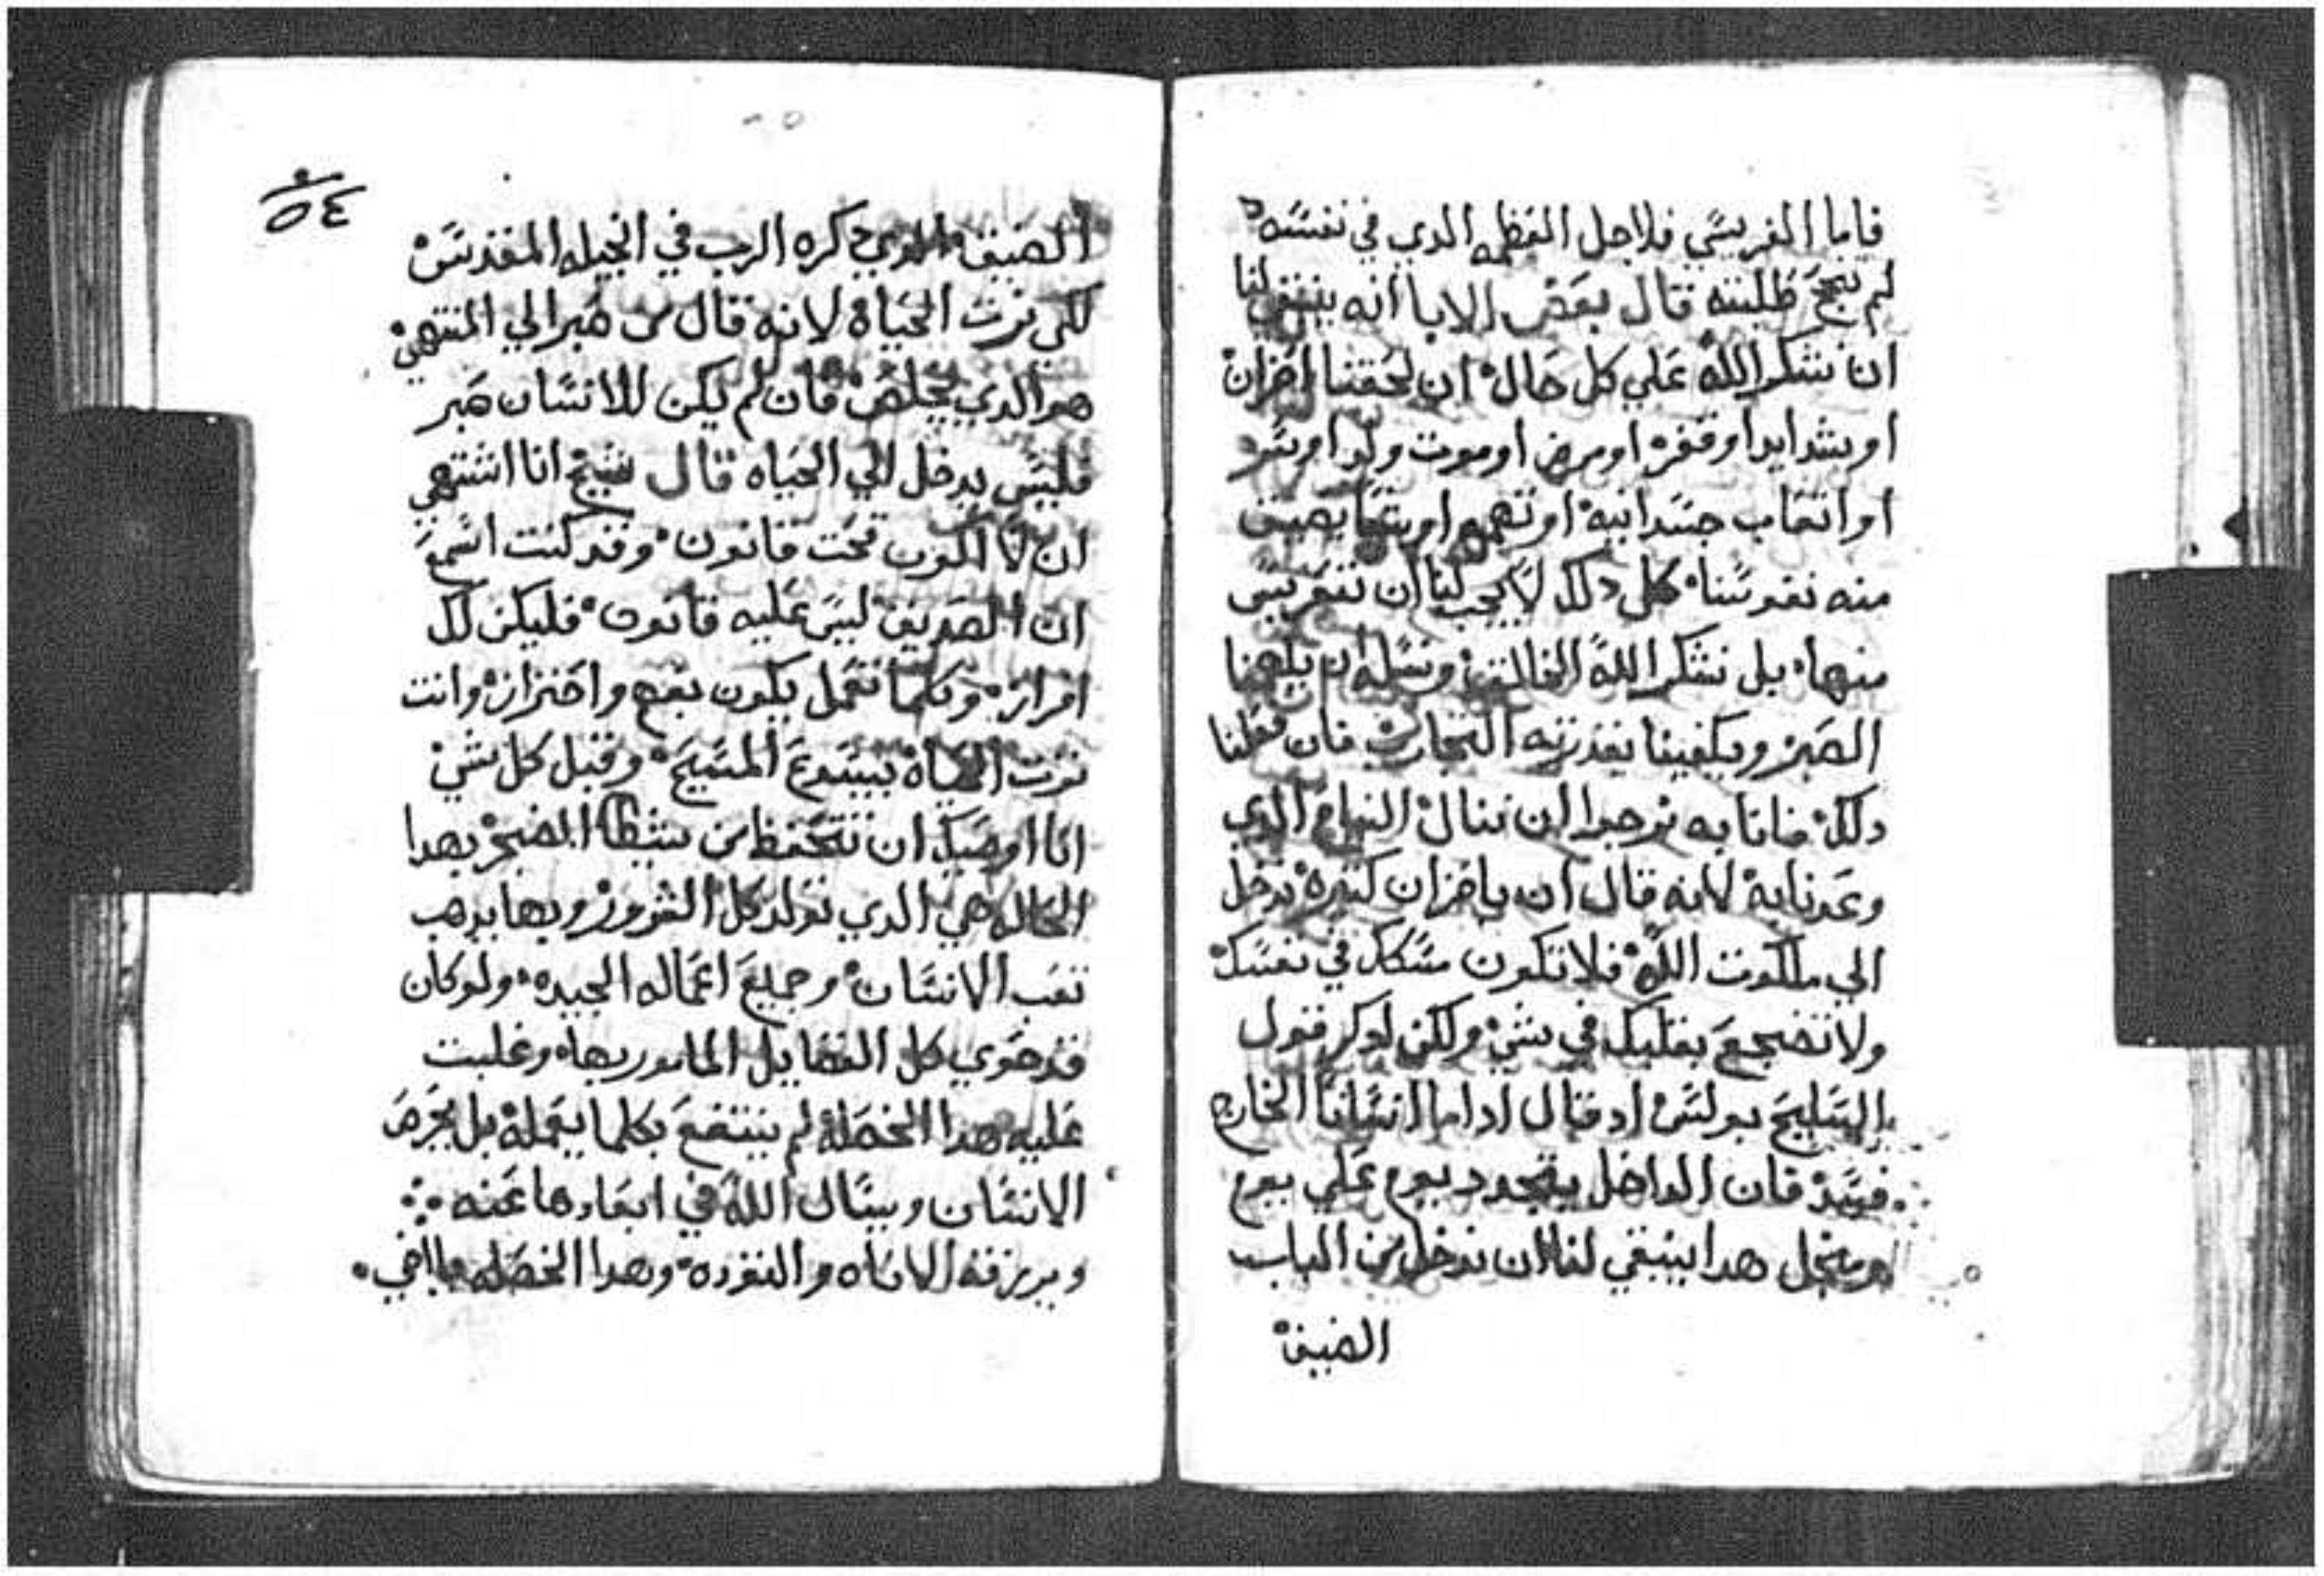 فاما الفريسي فلاجل العظمه الدي في نفسه
لم تنجح طلبته قال بعض الابا انه ينبغي لنا
ان نشكر الله علي كل حال ان لحقنا احزان
او شدايد او فقر او مرض او موت ولد او
او اتعاب جسدانيه او تهمه او
منه نفوسنا كل دلك لا يجب لنا ان
منها بل نشكر الله الخالق ونسله ان يلهمنا
الصبر ويكفينا بقدرته التجارب فان فعلنا
دلك فاننا به نرجوا ان ننال النياح الدي
وعدنا به لانه قال ان باحزان كتيره ندخل
الي ملكوت الله فلا تكون متكل في نفسك
ولا تضجع بقلبك في شي ولكن ادكر قول
السليح بولس اد قال اداما انساننا الخارج
فسد فان الداخل يتجدد يوم علي يوم
ومن اجل هدا ينبغي لنا ان ندخل من الباب
الضيق
٥٤
الضيق الدي دكره الرب في انجيله المقدس
لكي نرت الحياة لانه قال من صبر الي المنتهي
هو الدي يخلص فان لم يكن للانسان صبر
فليس يدخل الي الحياه قال شيخ انا اشتهي
ان لا اكون تحت قانون وقد كنت اسمع
ان الصديق ليس عليه قانون فليكن لك
افراز وكلما تعمل يكون بفهم واحتراز وانت
ترت الحياة بيسوع المسيح وقبل كل شي
انا اوصيك ان تتحفظ من شيطان الضجر بهدا
الحاله هي الدي تولد كل الشرور وبها يدهب
تعب الانسان وجميع اعماله الجيده ولو كان
قد حوي كل الفضايل المامور بها وغلبت
عليه هدا الخصله لم ينتفع بكلما يعمله بل يحرص
الانسان ويسال الله في ابعادها عنه
ويرزقه الاناه والتؤده وهدا الخصله ما